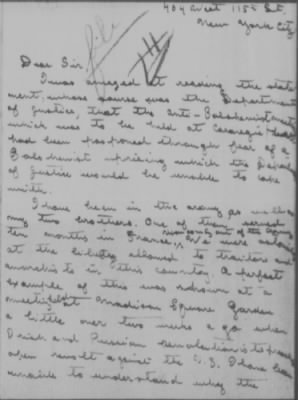 404 West 115 St.
New York City
file
Dear Sir,
I was amazed at reading the state
ment, whose source was the Department
of Justice, that the Anti-Bolshevist meeting
which was to be held at Carnegie Hall
had been postponed through fear of a
Bolshevist uprising which the Dept.
of Justice would be unable to cope
with.
I have been in the army as well as
my two brothers. One of them served
ten months in France. We were astounded
at the liberty allowed to traitors and
anarchists in this country. A perfect
example of this was shown at a
meeting at Madison Square Garden
a little over two weeks ago when
Irish and Russian revolutionists preached
open revolt against the U.S. I have been
unable to understand why the